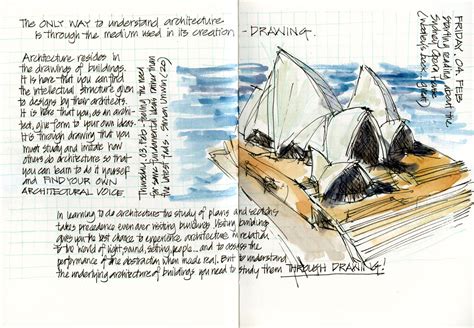 The ONLY WAY to understand architecture
is through the medium used in its creation - DRAWING.
Architecture resides in
the drawings of buildings.
It is here that you can find
the intellectual structure given
to designs by their architects.
It is here that you, as an archi-
tect, give form to your own ideas.
It's through drawing that you
must study and imitate how
others do architecture so that
you can learn to do it yourself
and FIND YOUR OWN
ARCHITECTURAL VOICE.
Thursday, 03. Feb. Feeling the need
for some fundamental ideas rather than
the latest fads. Simon Unwin
FRIDAY. 04. FEB
starting reading about the
Sydney Opera House
book
In learning to do architecture the study of plans and sections
takes precedence even over visiting buildings. Visiting buildings
gives you the best chance to experience architecture in relation
to the world of light, sound, setting, people... and to assess the
performance of the abstraction when made real. But to understand
the underlying architecture of buildings you need to study them THROUGH DRAWING!